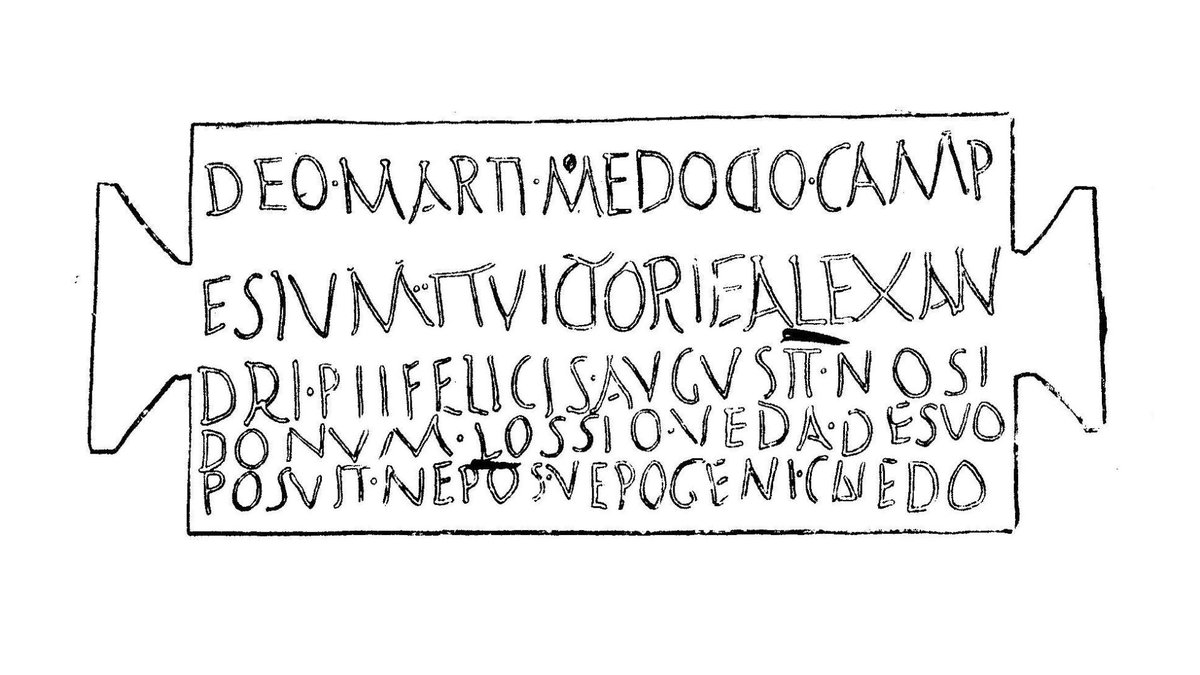 DEO·MARTI·MEDOCIO·CAMP
ESIVM·ET VICTORIE ALEXAN
DRI·PII FELICIS·AVGVSTI·NOSI
DONVM·LOSSIO·VEDA·DE SVO
POSVIT·NEPOS·VEPOGENI·CALEDO